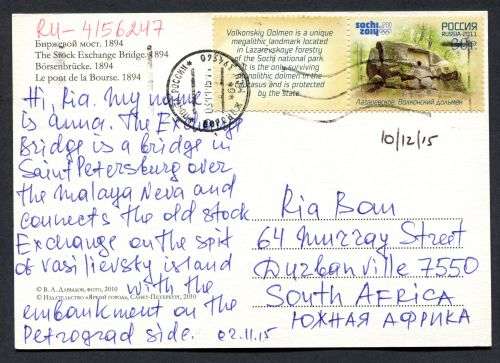 RU-4156247
Биржевой мост. 1894
The Stock Exchange Bridge. 1894
Börsenbrücke. 1894
Le pont de la Bourse. 1894
Hi, Ria. My name
is anna. The Exchange
Bridge is a bridge in
Saint Petersburg over
the Malaya Neva and
connects the old stock
Exchange on the spit
of Vasilievsky island
with the
embankment on the
Petrograd side.
02.11.15
© В. А. Давыдов, фото, 2010
© Издательство «Яркий город», Санкт-Петербург, 2010
Volkonskiy Dolmen is a unique
megalithic landmark located
in Lazarevskaye forestry
of the Sochi national park.
It is the only surviving
monolithic dolmen in the
Caucasus and is protected
by the State.
sochi
2014
РОССИЯ
RUSSIA•2011
Лазаревское. Волконский дольмен
ПОЧТА РОССИИ
10/12/15
Ria
64 Murray Street
Durbanville 7550
South Africa
Южная Африка